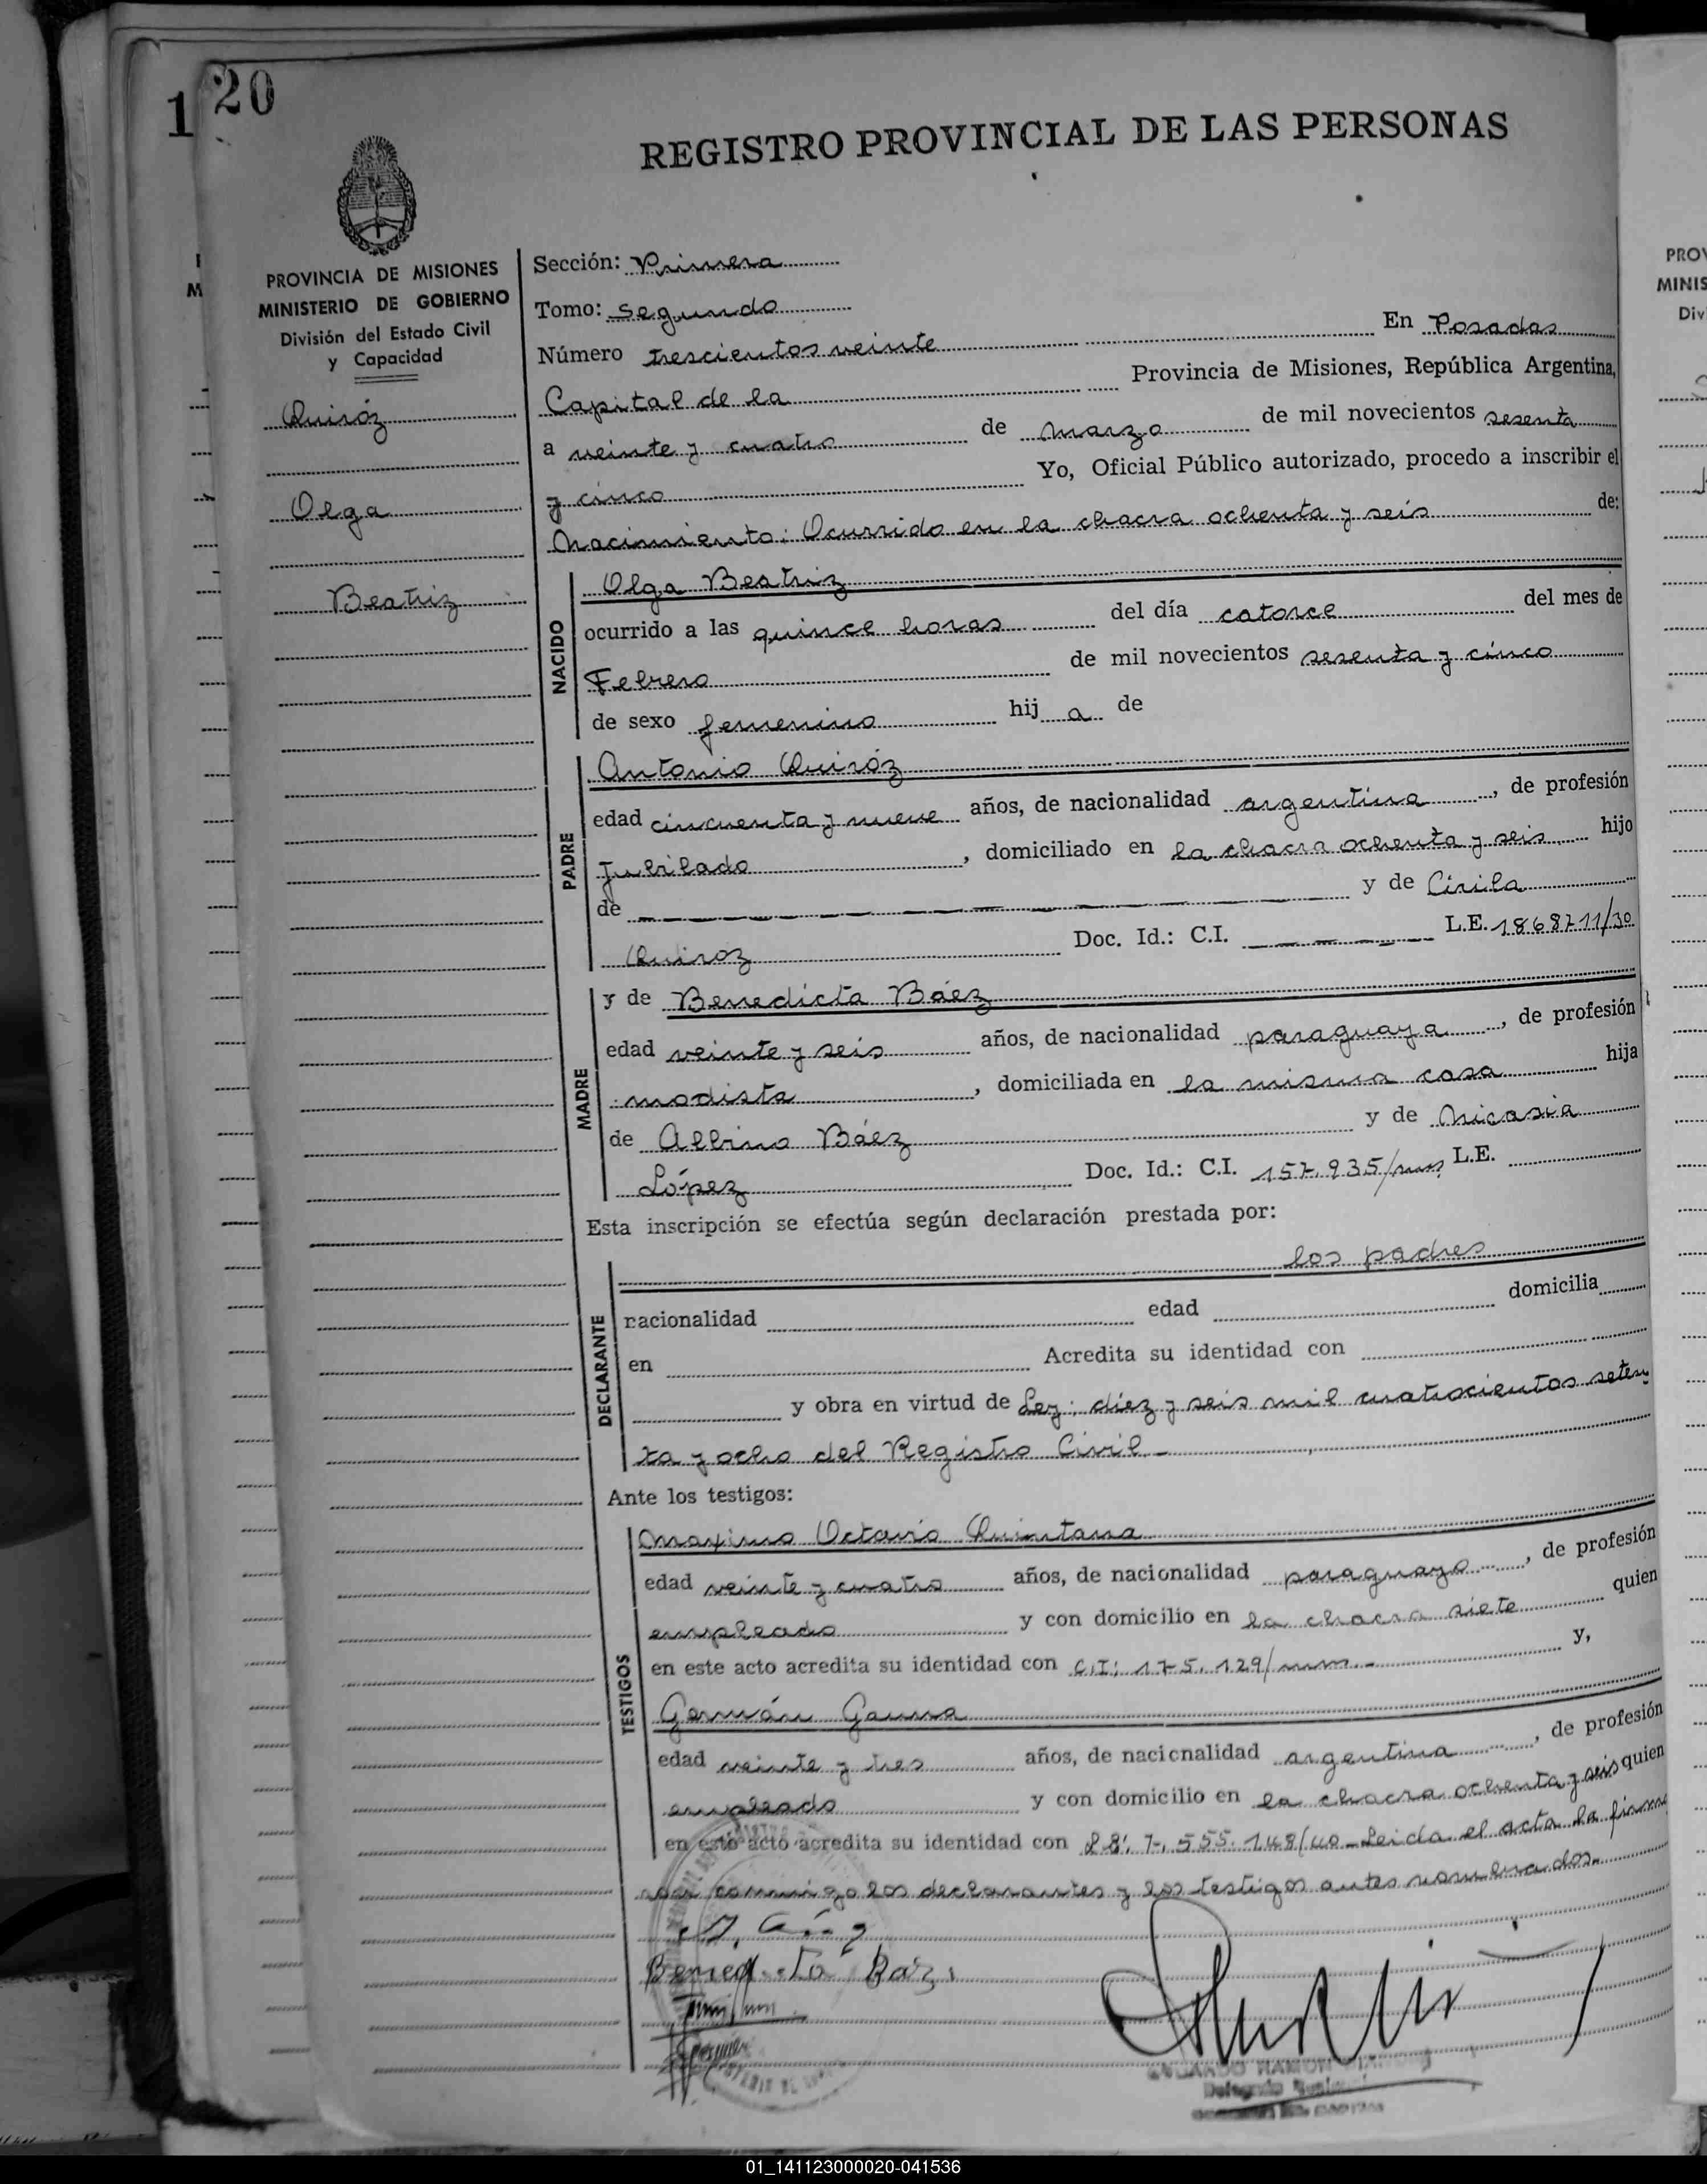 1 20
REGISTRO PROVINCIAL DE LAS PERSONAS
PROVINCIA DE MISIONES
MINISTERIO DE GOBIERNO
División del Estado Civil
y Capacidad
Quiróz
Olga
Beatriz
Sección: Primera
Tomo: Segundo
Número trescientos veinte En Posadas
Capital de la Provincia de Misiones, República Argentina,
a veinte y cuatro de marzo de mil novecientos sesenta
y cinco Yo, Oficial Público autorizado, procedo a inscribir el
Nacimiento: Ocurrido en la chacra ochenta y seis de:
NACIDO
Olga Beatriz
ocurrido a las quince horas del día catorce del mes de
Febrero de mil novecientos sesenta y cinco
de sexo femenino hij a de
PADRE
Antonio Quiróz
edad cincuenta y nueve años, de nacionalidad argentina, de profesión
Jubilado, domiciliado en la chacra ochenta y seis hijo
de — — — — — — — y de Cirila
Quiroz Doc. Id.: C.I. — — — — L.E. 1868711/30
MADRE
y de Benedicta Báez
edad veinte y seis años, de nacionalidad paraguaya, de profesión
modista, domiciliada en la misma casa hija
de Albino Báez y de Nicasia
López Doc. Id.: C.I. 157.935/mnes L.E.
Esta inscripción se efectúa según declaración prestada por:
DECLARANTE
los padres
nacionalidad edad domicilia
en Acredita su identidad con
y obra en virtud de Ley: diez y seis mil cuatrocientos seten
ta y ocho del Registro Civil.-
Ante los testigos:
TESTIGOS
Maximo Octavio Quintana
edad veinte y cuatro años, de nacionalidad paraguayo, de profesión
empleado y con domicilio en la chacra siete quien
en este acto acredita su identidad con C.I: 175.129/mnes.- y,
Germán Gauna
edad veinte y tres años, de nacionalidad argentina, de profesión
empleado y con domicilio en la chacra ochenta y seis quien
en este acto acredita su identidad con 7.555.148/40 Leida el acta la firma
conmigo los declarantes y los testigos antes nombrados.-
Báez
RAMON
Delegado
01_141123000020-041536